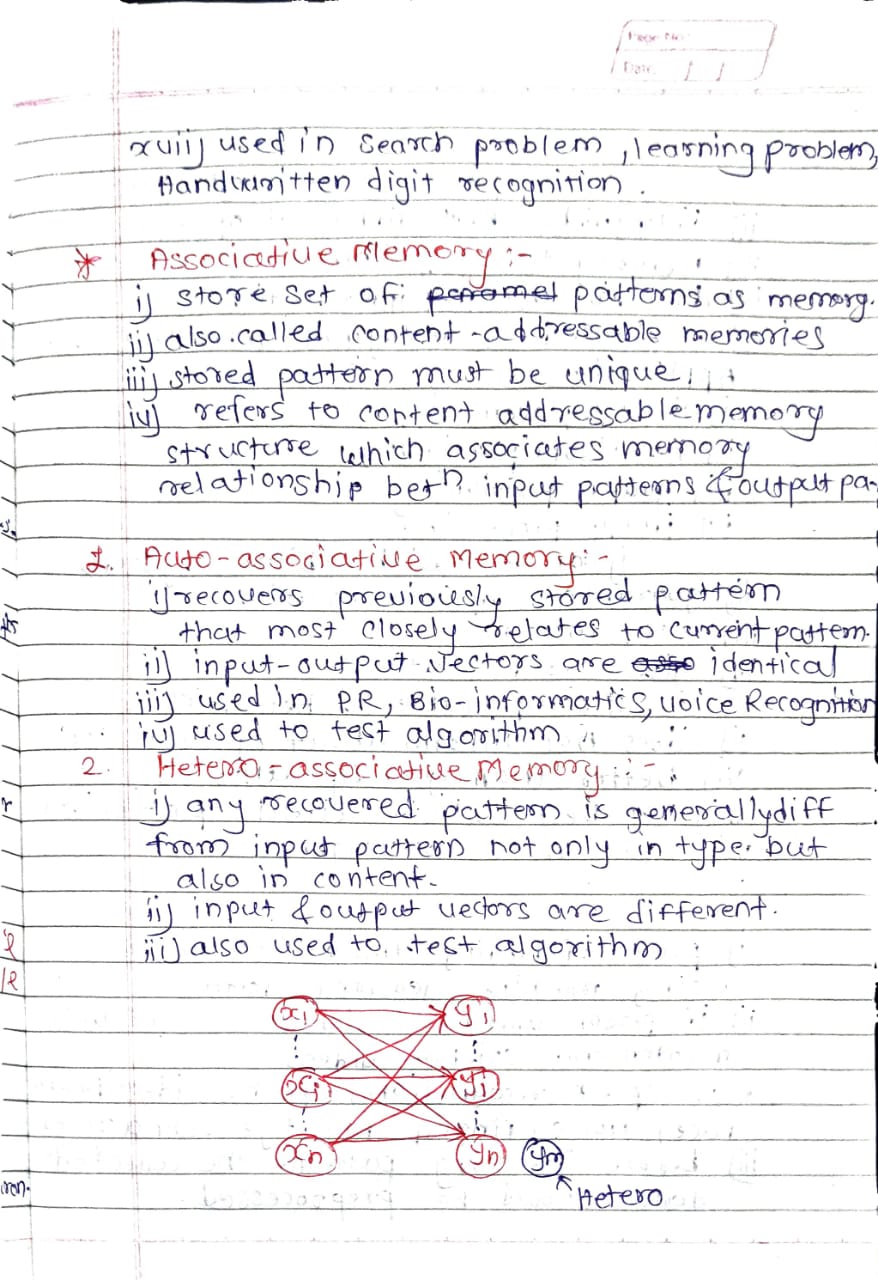 Page No:
Date: / /
xviij used in search problem, learning problem,
Handwritten digit recognition.
* Associative Memory :-
i) store set of patterns as memory.
ii) also called content-addressable memories
iii) stored pattern must be unique.
iv) refers to content addressable memory
structure which associates memory
relationship betn input patterns & output pa-
1. Auto-associative Memory:-
i) recovers previously stored pattern
that most closely relates to current pattern.
ii) input-output vectors are identical
iii) used in PR, Bio-informatics, voice Recognition
iv) used to test algorithm
2. Hetero-associative Memory:-
i) any recovered pattern is generally diff
from input pattern not only in type but
also in content.
ii) input & output vectors are different.
iii) also used to test algorithm
x1 y1
xi yj
xn yn ym
Hetero